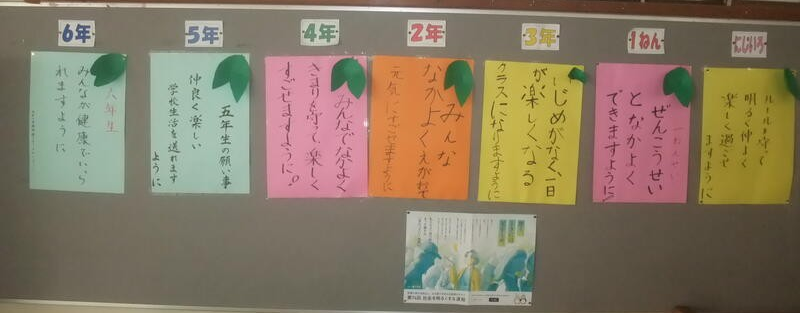 6年
六年生
みんなが健康でいら
れますように
5年
五年生の願い事
仲良く楽しい
学校生活を送れます
ように
4年
みんなでなかよく
きまりを守って、楽しく
すごせますように!
2年
みんな
なかよくえがおで
元気にすごせますように
3年
いじめがなく、一日
が、楽しくなる
クラスになりますように
1ねん
ぜんこうせい
となかよく
できますように!
ルールを守って
明るく仲よく
楽しく過ごせ
ますように
社会を明るくする運動